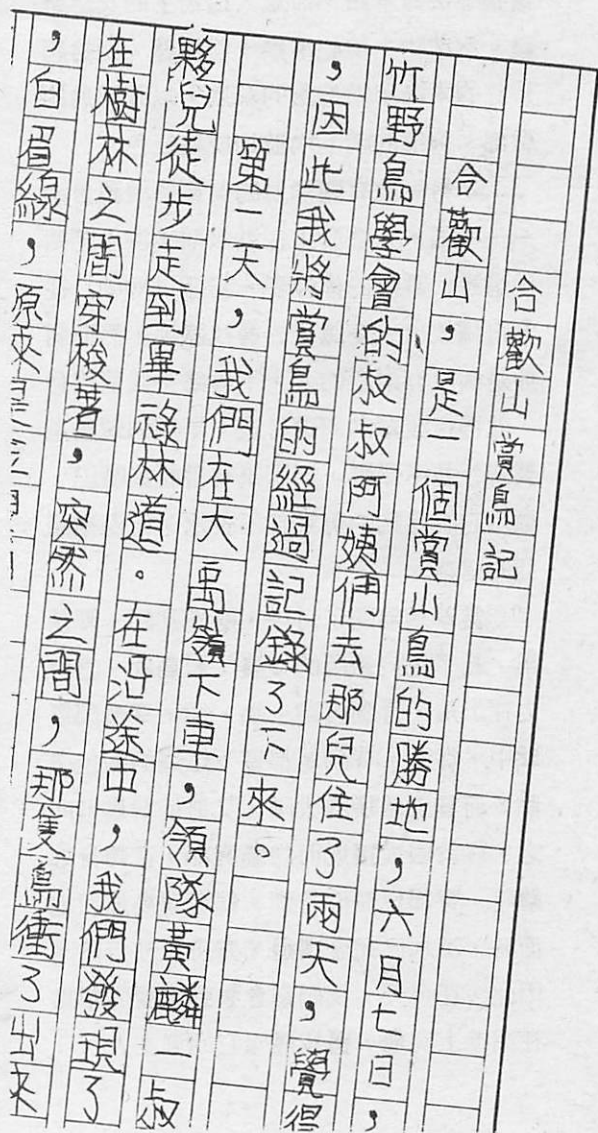 合歡山賞鳥記
合歡山，是一個賞山鳥的勝地，六月七日，
竹野鳥學會的叔叔阿姨們去那兒住了兩天，覺得
，因此我將賞鳥的經過記錄了下來。
第一天，我們在大禹嶺下車，領隊黃麟一叔
夥兒徒步走到畢祿林道。在沿途中，我們發現了
在樹林之間穿梭著，突然之間，那隻鳥衝了出來
，白眉線，原來